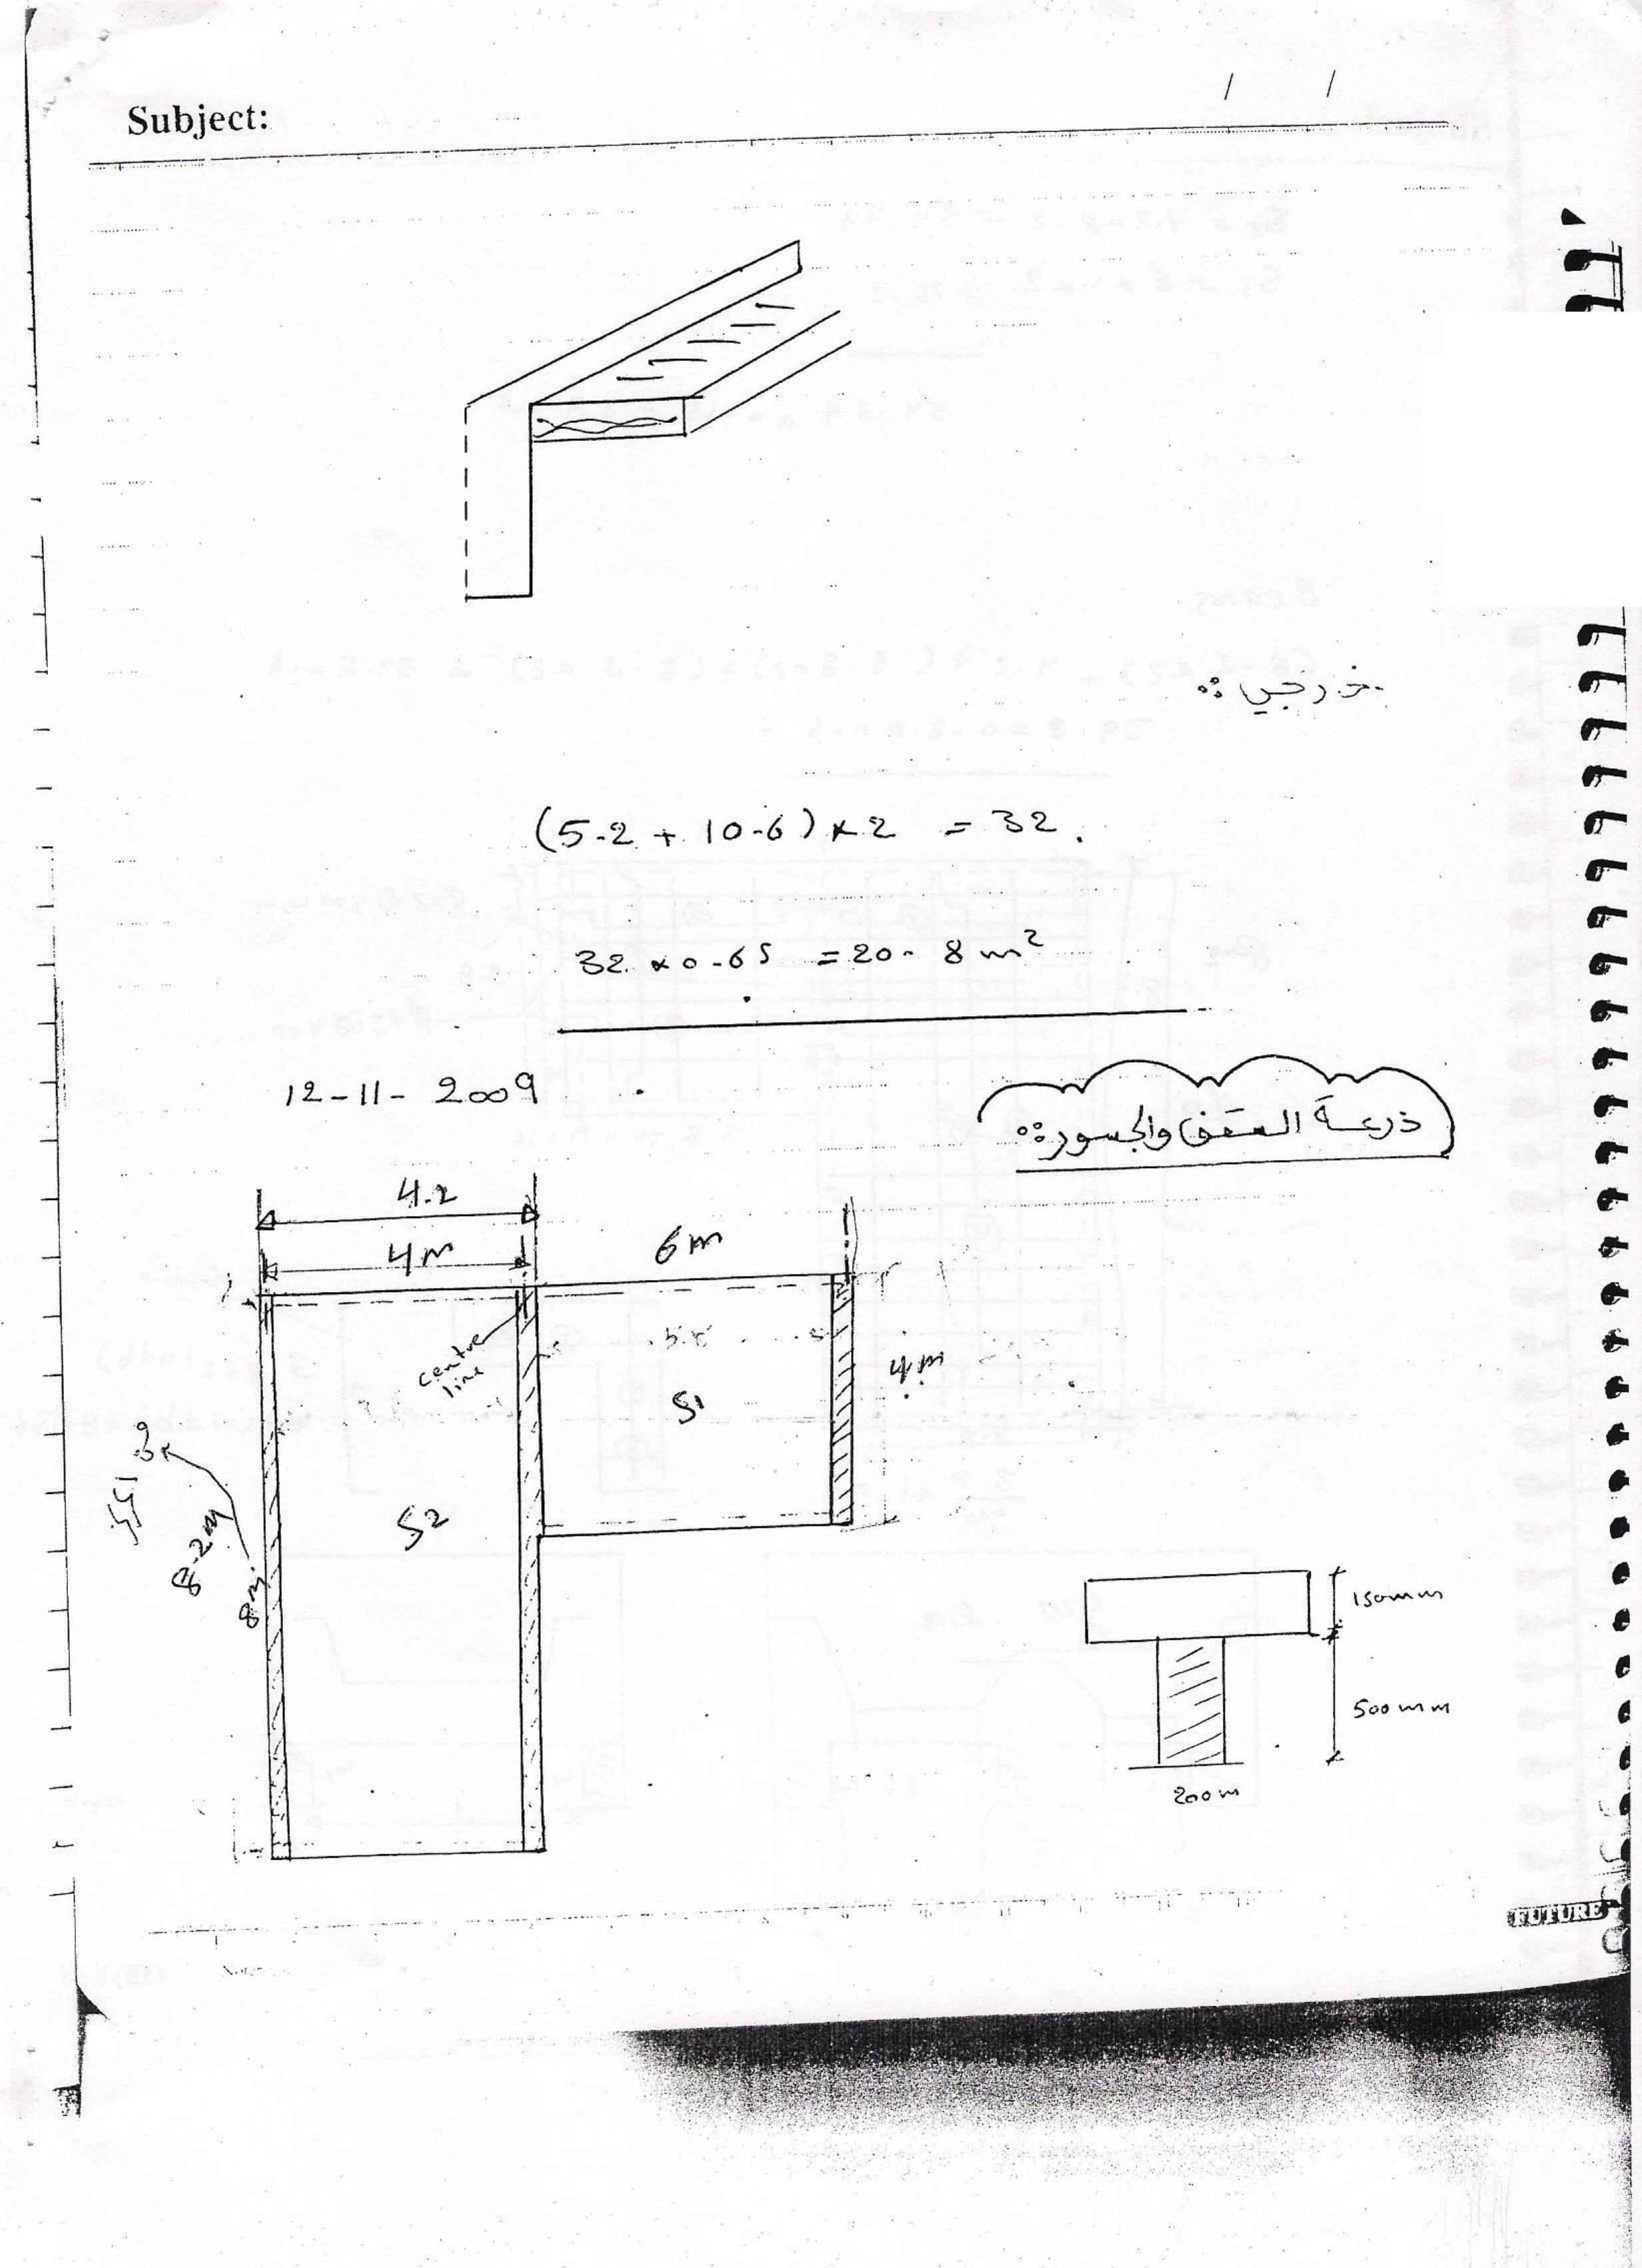 Subject:
/ /
خارجي :
(5.2 + 10.6) x 2 = 32.
32 x 0.65 = 20.8 m²
12-11-2009
ذرعة السقف والجسور :
4.2
4m
6m
centre
line
S1
4m
S2
8.2m
8m
150mm
500mm
200m
FUTURE